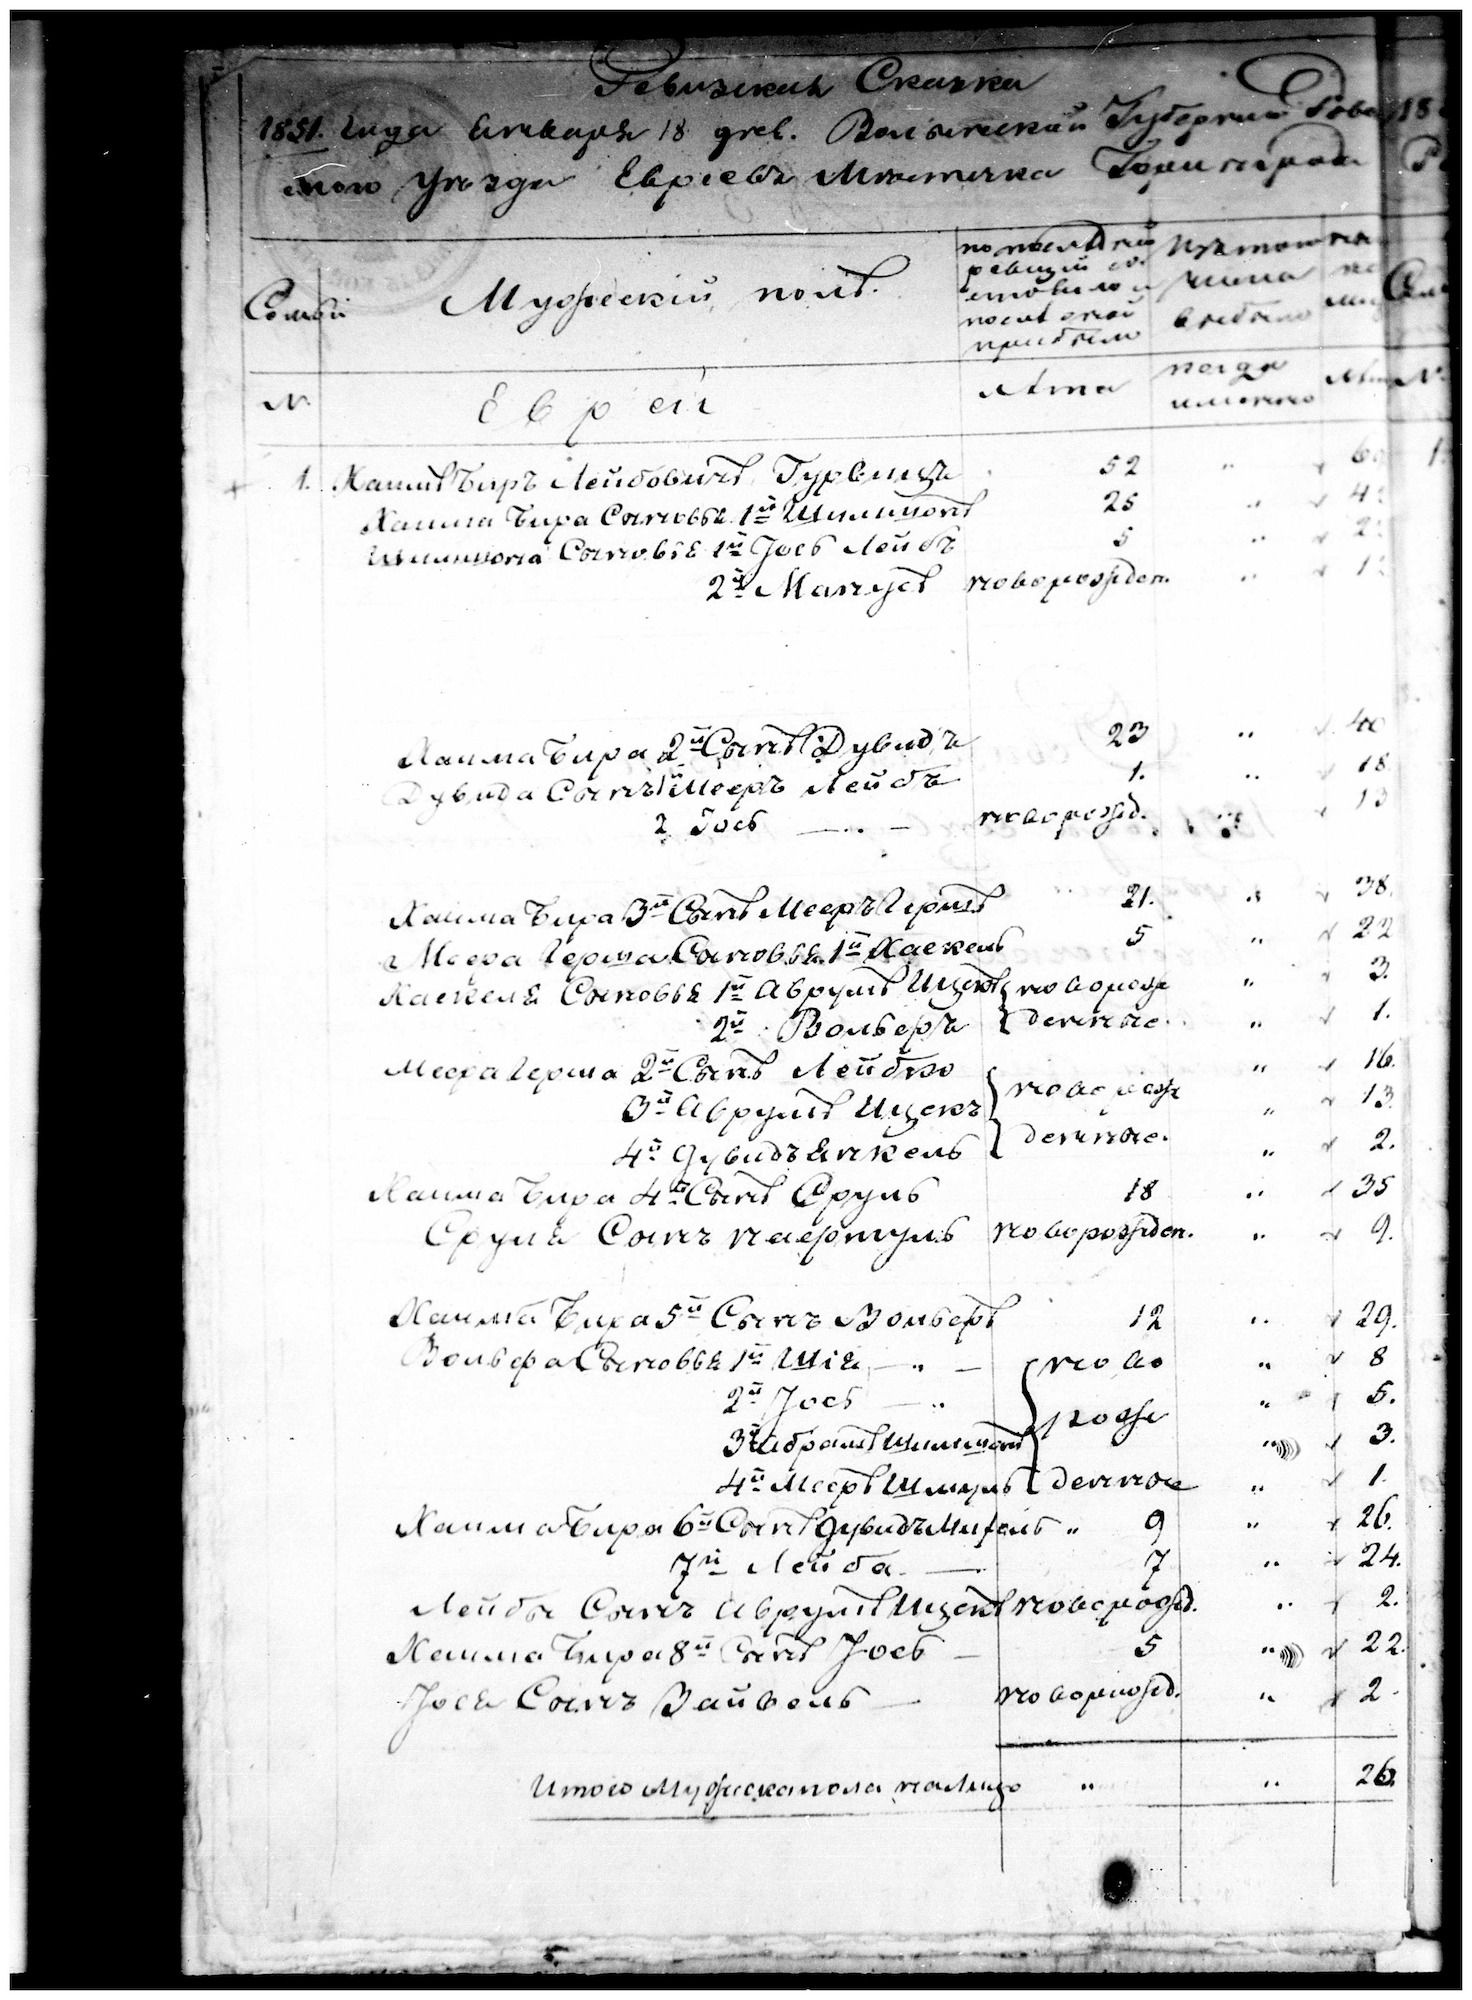 Ревизская Сказка
1851. года Января 18 дня. Волынской Губернии Рове
ского уѣзда Евреевъ Мѣстечка
Семьи
Мужескій полъ.
по послѣдней ревизіи состояло и послѣ оной прибыло
Изъ того числа выбыло
№
Еврей
Лѣта
когда именно
1. Хаимъ Беръ Лейбовичъ Гурвицъ 52 " 6
Хаима Бера Сыновья 1й Шлиомъ 25 " 4
Сыновья 1й Іось Лейбъ 5 " 2
2й Манусъ новорожден. " 1
Хаима Бера 2й Сынъ Дувидъ 23 " 40
Дувида Сынъ 1й Мееръ Лейбъ 1. " 18.
2 Іось новорожд. " 13
Хаима Бера 3й Сынъ Мееръ Гершъ 21. " 38.
Меера Герша Сыновья 1й Хаскель 5 " 22
Хаскеля Сыновья 1й Аврумъ Ицекъ новорож " 3.
2й Вольферъ денные. " 1.
Меера Герша 2й Сынъ Лейбко " 16.
3й Аврумъ Ицекъ новорож " 13
4й Дувидъ Янкель денные. " 2.
Хаима Бера 4й Сынъ Сруль 18 " 35
Сруля Сынъ Нафтуль новорожден. " 9.
Хаима Бера 5й Сынъ Вольферъ 12 " 29.
Вольфера Сыновья 1й Шія " ново " 8
2й Іось " " 5.
3й Абрамъ рож " 3.
4й Мееръ Шмуль денные " 1
Хаима Бера 6й Сынъ Дувидъ Михель " 9 " 26.
7й Лейба 7 " 24.
Лейбы Сынъ Аврумъ Ицекъ новорожд. " 2.
Хаима Бера 8й Сынъ Іось 5 " 22.
Іося Сынъ Зайвель новорожд. " 2
Итого Мужеска пола налицо " " 26.